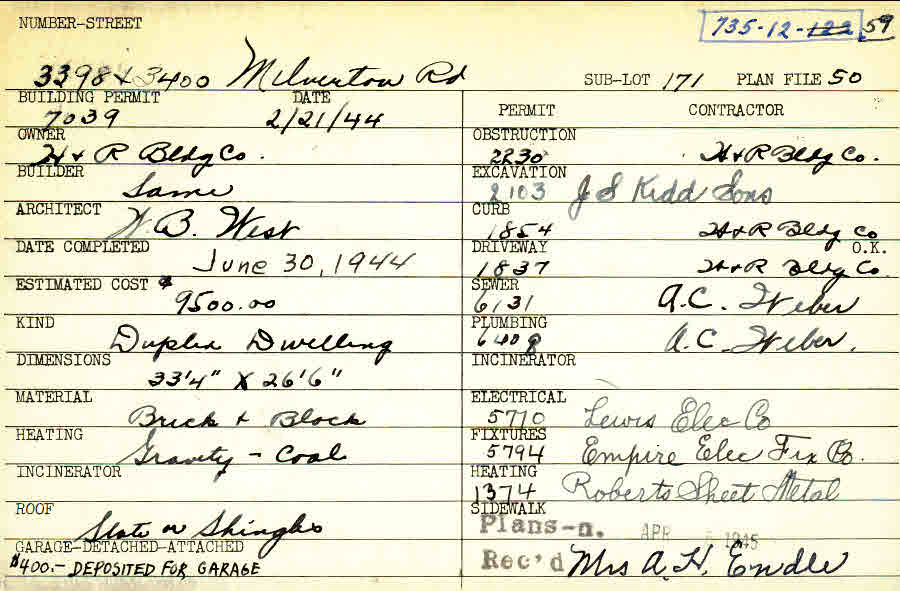 NUMBER-STREET
735-12-122 59
3398 & 3400 Milverton Rd SUB-LOT 171 PLAN FILE 50
BUILDING PERMIT DATE
7039 2/21/44
OWNER
H & R Bldg Co.
BUILDER
Same
ARCHITECT
W. B. West
DATE COMPLETED
June 30, 1944
ESTIMATED COST $
9500.00
KIND
Duplex Dwelling
DIMENSIONS
33'4" X 26'6"
MATERIAL
Brick & Block
HEATING
Gravity - Coal
INCINERATOR
ROOF
Slate or Shingles
GARAGE-DETACHED-ATTACHED
$400.- DEPOSITED FOR GARAGE
PERMIT CONTRACTOR
OBSTRUCTION
2230 H & R Bldg Co.
EXCAVATION
2103 J S Kidd Sons
CURB
1854 H & R Bldg Co
DRIVEWAY O.K.
1837 H & R Bldg Co.
SEWER
6131 A.C. Weber
PLUMBING
6408 A.C. Weber.
INCINERATOR
ELECTRICAL
5710 Lewis Elec Co
FIXTURES
5794 Empire Elec Fix Co.
HEATING
1374 Roberts Sheet Metal
SIDEWALK
Plans-n. APR 1945
Rec'd Mrs A. H. Endle